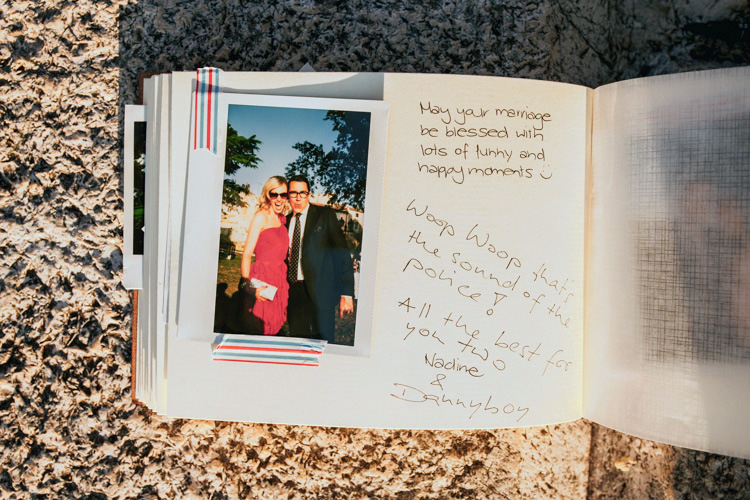 May your marriage
be blessed with
lots of funny and
happy moments :)
Woop Woop that's
the sound of the
police!
All the best for
you two
Nadine
&
Dannyboy